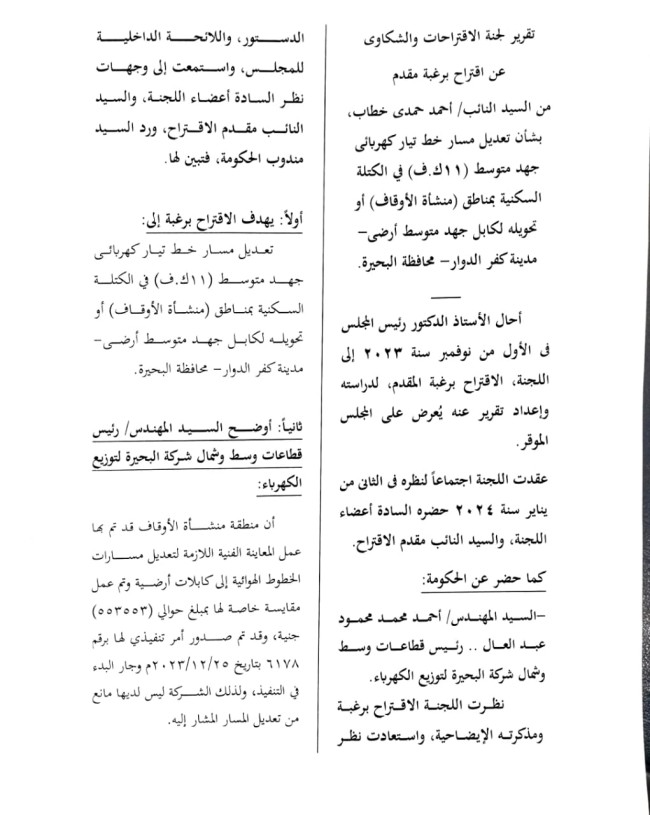 تقرير لجنة الاقتراحات والشكاوى
عن اقتراح برغبة مقدم
من السيد النائب/ أحمد حمدى خطاب،
بشأن تعديل مسار خط تيار كهربائى
جهد متوسط (١١ك.ف) في الكتلة
السكنية بمناطق (منشأة الأوقاف) أو
تحويله لكابل جهد متوسط أرضى–
مدينة كفر الدوار– محافظة البحيرة.
أحال الأستاذ الدكتور رئيس المجلس
فى الأول من نوفمبر سنة ٢٠٢٣ إلى
اللجنة، الاقتراح برغبة المقدم، لدراسته
وإعداد تقرير عنه يُعرض على المجلس
الموقر.
عقدت اللجنة اجتماعاً لنظره فى الثانى من
يناير سنة ٢٠٢٤ حضره السادة أعضاء
اللجنة، والسيد النائب مقدم الاقتراح.
كما حضر عن الحكومة:
–السيد المهندس/ أحمد محمد محمود
عبد العال .. رئيس قطاعات وسط
وشمال شركة البحيرة لتوزيع الكهرباء.
نظرت اللجنة الاقتراح برغبة
ومذكرته الإيضاحية، واستعادت نظر
الدستور، واللائحة الداخلية
للمجلس، واستمعت إلى وجهات
نظر السادة أعضاء اللجنة، والسيد
النائب مقدم الاقتراح، ورد السيد
مندوب الحكومة، فتبين لها.
أولاً: يهدف الاقتراح برغبة إلى:
تعديل مسار خط تيار كهربائى
جهد متوسط (١١ك.ف) في الكتلة
السكنية بمناطق (منشأة الأوقاف) أو
تحويله لكابل جهد متوسط أرضى–
مدينة كفر الدوار– محافظة البحيرة.
ثانياً: أوضح السيد المهندس/ رئيس
قطاعات وسط وشمال شركة البحيرة لتوزيع
الكهرباء:
أن منطقة منشأة الأوقاف قد تم بها
عمل المعاينة الفنية اللازمة لتعديل مسارات
الخطوط الهوائية إلى كابلات أرضية وتم عمل
مقايسة خاصة لها بمبلغ حوالي (٥٥٣٥٥٣)
جنية، وقد تم صدور أمر تنفيذي لها برقم
٦١٧٨ بتاريخ ٢٠٢٣/١٢/٢٥م وجار البدء
في التنفيذ، ولذلك الشركة ليس لديها مانع
من تعديل المسار المشار إليه.